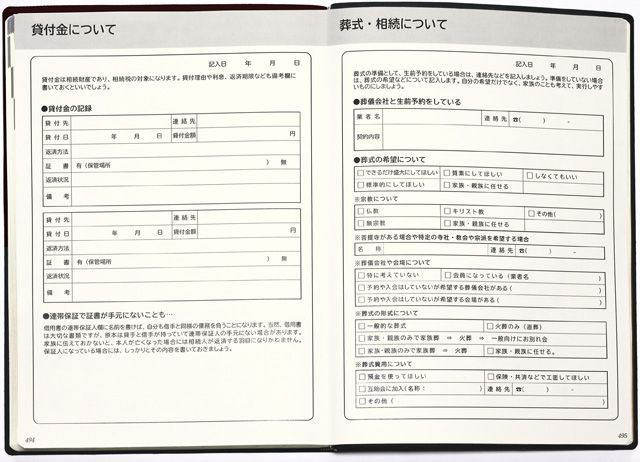 貸付金について
記入日　年　月　日
貸付金は相続財産であり、相続税の対象になります。貸付理由や利息、返済期限なども備考欄に
書いておくといいでしょう。
●貸付金の記録
貸付先　連絡先
貸付日　年　月　日　貸付金額　円
返済方法
証書　有（保管場所　）　無
返済状況
備考
貸付先　連絡先
貸付日　年　月　日　貸付金額　円
返済方法
証書　有（保管場所　）　無
返済状況
備考
●連帯保証で証書が手元にないことも…
借用書の連帯保証人欄に名前を書けば、自分も借手と同様の債務を負うことになります。当然、借用書
は大切な書類ですが、原本は貸手と借手が持っていて連帯保証人の手元にない場合があります。
家族に伝えておかないと、本人が亡くなった場合には相続人が返済する羽目になりかねません。
保証人になっている場合には、しっかりとその内容を書いておきましょう。
494
葬式・相続について
記入日　年　月　日
葬式の準備として、生前予約をしている場合は、連絡先などを記入しましょう。準備をしていない場合
は、葬式の希望などについて記入します。自分の希望だけでなく、家族のことも考えて、実行しやす
いものにしましょう。
●葬儀会社と生前予約をしている
業者名　連絡先　☎（　）　-
契約内容
●葬式の希望について
□できるだけ盛大にしてほしい　□質素にしてほしい　□しなくてもいい
□標準的にしてほしい　□家族・親族に任せる
※宗教について
□仏教　□キリスト教　□その他（　）
□無宗教　□家族・親族に任せる
※菩提寺がある場合や特定の寺社・教会や宗派を希望する場合
名称　連絡先　☎（　）　-
※葬儀会社や会場について
□特に考えていない　□会員になっている（業者名　）
□予約や入会はしていないが希望する葬儀会社がある（　）
□予約や入会はしていないが希望する会場がある（　）
※葬式の形式について
□一般的な葬式　□火葬のみ（直葬）
□家族・親族のみで家族葬　⇒　火葬　⇒　一般向けにお別れ会
□家族・親族のみで家族葬　⇒　火葬　□家族・親族に任せる。
※葬式費用について
□預金を使ってほしい　□保険・共済などで工面してほしい
□互助会に加入（名称：　）　連絡先　☎（　）　-
□その他（　）
495